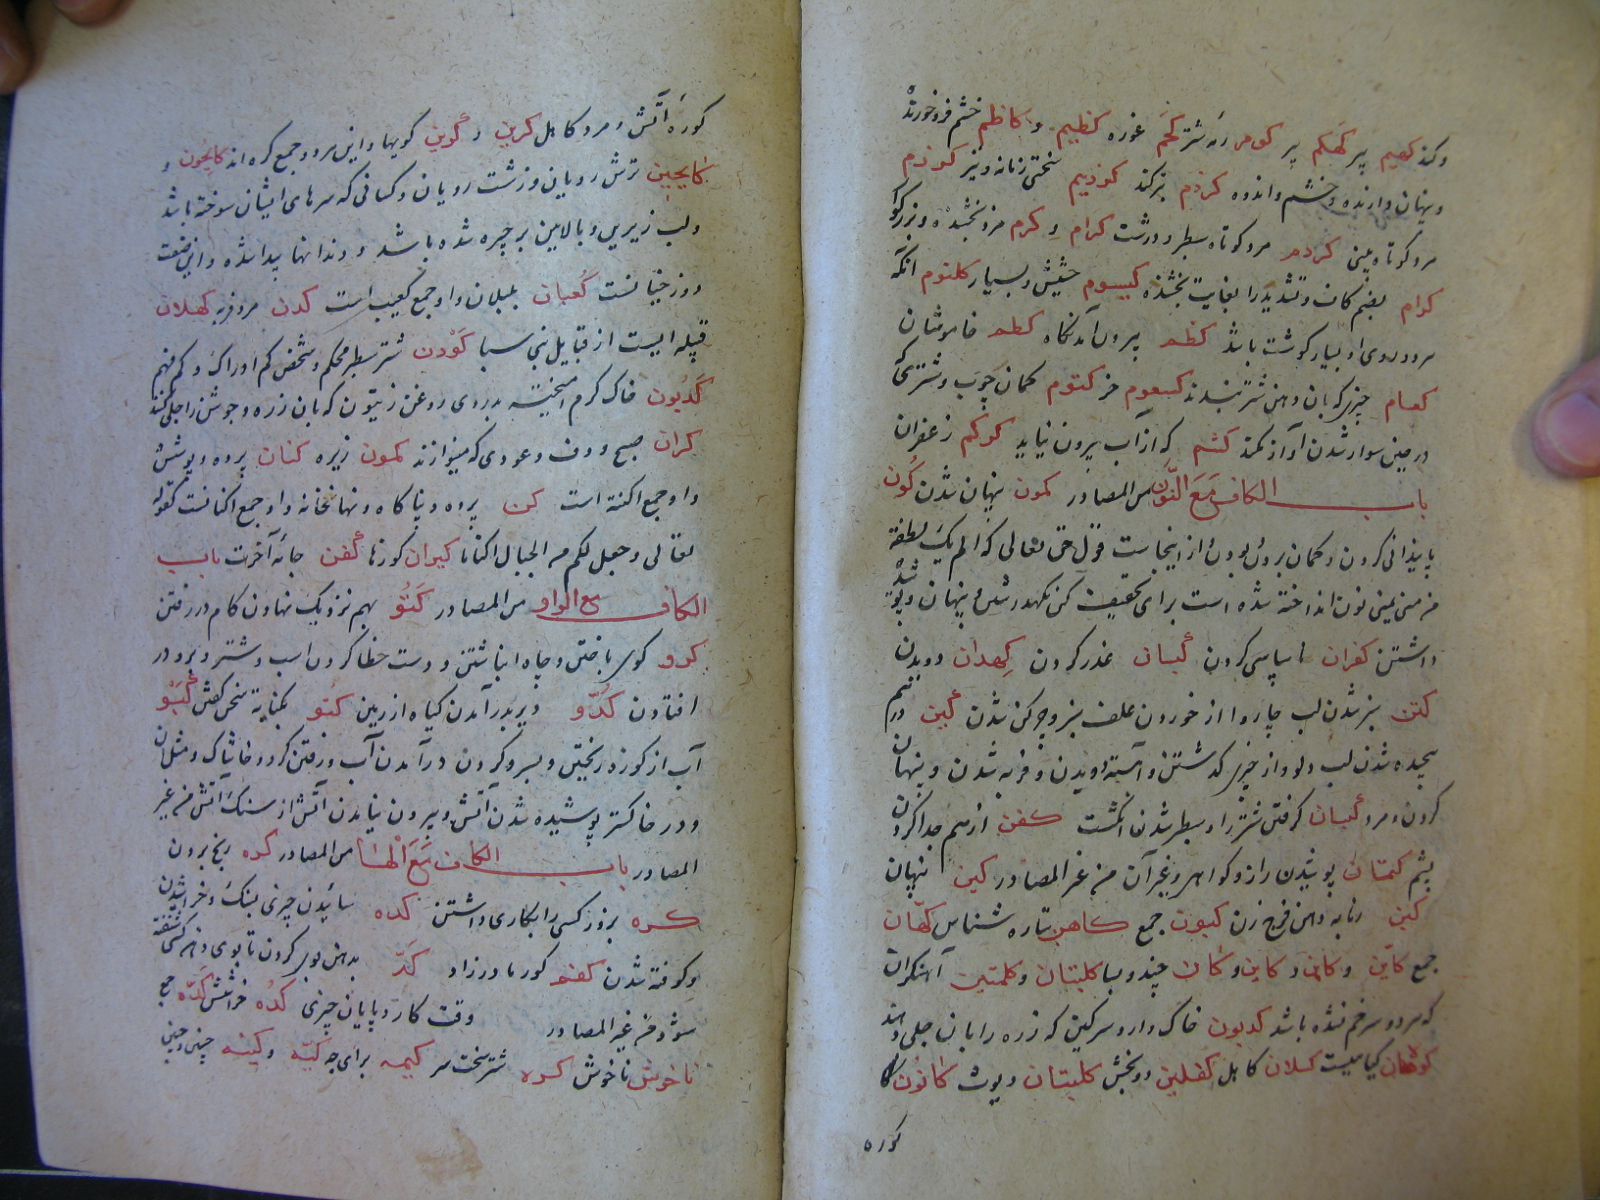 وکند کهیم پیر کهکم پیر کوم رمهٔ شتر کحم غوره کظیم و کاظم خشم فروخورنده
و پنهان دارنده و خشم و اندوه کرزم کوزیم سختی زمانه و نیز کوزم
مرد کوتاه بینی کردم مرد کوتاه سطبر و درشت کرام و کرم مرد بخشنده و بزرگوار
کرام بضم کاف و تشدید را بغایت بخشنده کیسوم حشیش بسیار کلثوم آنکه
مرد و روی او بسیار کوشت باشد کظم بیرون آمدنگاه کظم خاموشان
کعام چیزی که بان دهن شتر بندند کسعوم خر کتوم کمان چوب و شتری که
در حین سوار شدن آواز نکند که از آب بیرون نیاید کرکم زعفران
باب الکاف مع النون من المصادر کمون پنهان شدن کون
بودن از اینجاست قول حق تعالی که الم یک نطفة
من منی یمنی نون انداخته شده است برای تخفیف کن نگهدرشتن و پنهان و پوشیده
داشتن کفران ناسپاسی کردن غدر کردن کهدان دویدن
کتن سبز شدن لب چاروا از خوردن علف سبز و چرکن شدن کبن
پیچیده شدن لب دلو و از چیزی کذشتن و آهسته دویدن و فربه شدن و پنهان
کردن و مرد کرفتن شتر را و سطبر شدن انکشت کفن از هم جدا کردن
پشم کتمان پوشیدن راز و کواهی و غیر آن من غیر المصادر کین پنهان
کین دهن فرج زن کیون جمع کاهن ستاره شناس کهان
جمع کاین و کانی و کاین و کان چند و بسا کلبتان و کلبتین آهنکران
که سرد و سرخ نشده باشد کدیون خاک دار و سرکین که زره را بان جلی دهند
کیاهیست کسلان کاهل کفلین دو بخش کلیتان کانون
کوره
کوره آتش و مرد کاهل کرین و کوین کویها و این هر دو جمع کره اند کالحون و
کالحین ترش رویان و زشت رویان و کسانی که سرهای ایشان سوخته باشد
و لب زیرین و بالاین برچیره شده باشد و دندانها پیدا شده و این صفت
دوزخیانست کعبان بلبلان و او جمع کعیب است کدن مرد فربه کهلان
قبیله ایست از قبایل بنی سبا کودن شتر سطبر محکم و شخص کم ادراک و کم فهم
کدیون خاک کرم آمیخته بدردی روغن زیتون که بان زره و جوشن را جلی کنند
کران صبح و دف و عودی که مینوازند کمون زیره کنان پرده و پوشش
و او جمع اکنه است کن پرده و پناکاه و نهانخانه و او جمع اکنانست کقوله
تعالی و جعل لکم من الجبال اکنانا کیران کوزها کفن جامهٔ آخرت باب
الکاف مع الواو من المصادر کتو بهم نزدیک نهادن کام در رفتن
کرو کوی باختن و چاه انباشتن و دست خطا کردن اسب و شتر و برو در
افتادن کدو دیر بدر آمدن کیاه از زمین کنو بکنایه سخن کفتن کبو
آب از کوزه ریختن و بسر و کردن در آمدن آب و رفتن کرد و خاشاک و مثل آن
و در خاکستر پوشیده شدن آتش و بیرون نیامدن آتش از سنک آتش من غیر
المصادر باب الکاف مع الها من المصادر کره رنج بردن
کره بزور کسی را بکاری داشتن کده ساییدن چیزی بسنک و خراشیدن
و کوفته شدن کمه کور مادرزاد بدهن بوی کردن تا بوی دهن کسی شنفته
شود من غیر المصادر وقت کار و پایان چیزی کده خراشش کده جمع
ناخوش ناخوش کره شتر سخت سر کیمه برای چه کیه و کینه چنین و چنین